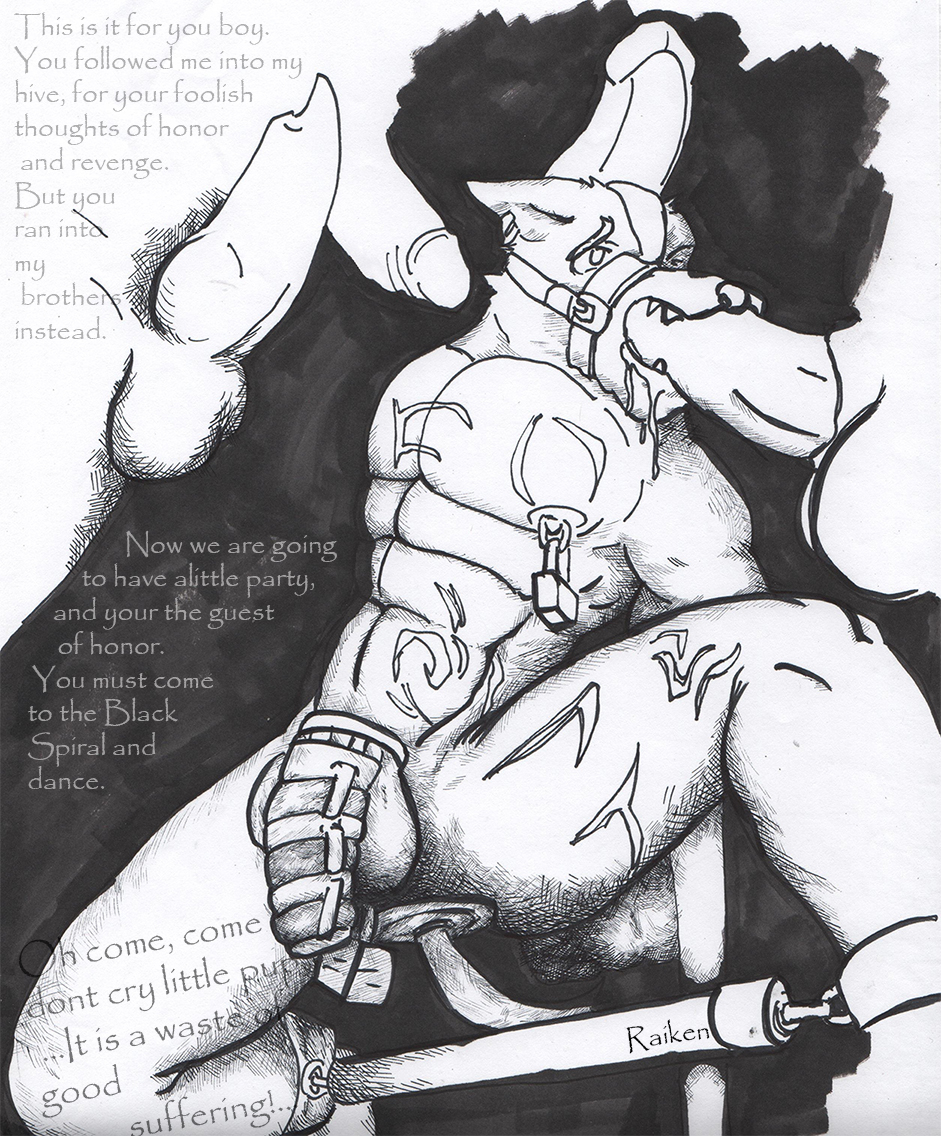 This is it for you boy.
You followed me into my
hive, for your foolish
thoughts of honor
and revenge.
But you
ran into
my
brothers
instead.
Now we are going
to have alittle party,
and your the guest
of honor.
You must come
to the Black
Spiral and
dance.
Oh come, come
dont cry little pup
...It is a waste of
good
suffering!..
Raiken